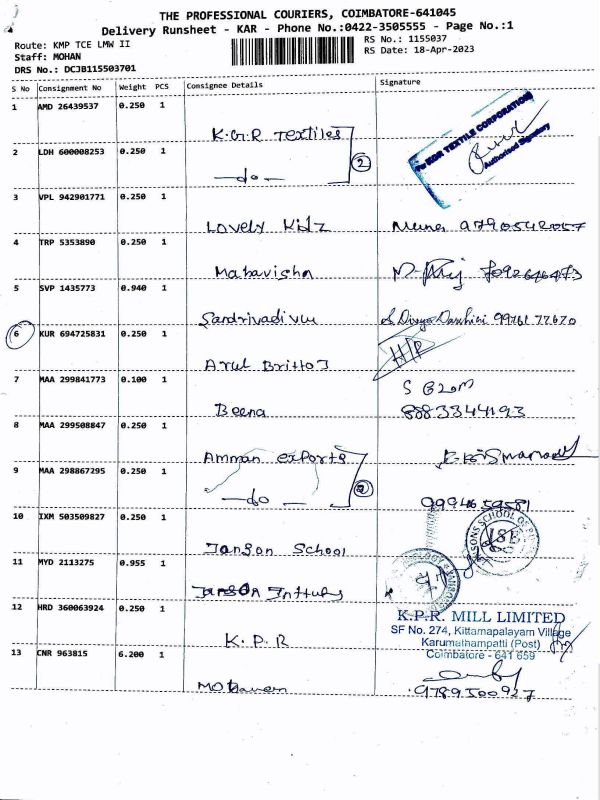 THE PROFESSIONAL COURIERS, COIMBATORE-641045
Delivery Runsheet - KAR - Phone No.:0422-3505555 - Page No.:1
Route: KMP TCE LMW II
RS No.: 1155037
Staff: MOHAN
RS Date: 18-Apr-2023
DRS No.: DCJB115503701
S No Consignment No Weight PCS Consignee Details Signature
1 AMD 26439537 0.250 1
K.G.R Textiles
For KGR TEXTILE CORPORATION
Authorised Signatory
2 LDH 600008253 0.250 1
-do-
2
3 VPL 942901771 0.250 1
Lovely Kidz
4 TRP 5353890 0.250 1
5 SVP 1435773 0.940 1
6 KUR 694725831 0.250 1
Arul Britto J
H/R
7 MAA 299841773 0.100 1
Beena
8883344193
8 MAA 299508847 0.250 1
Amman exports
9 MAA 298867295 0.250 1
-do-
2
9994659581
10 IXM 503509827 0.250 1
Janson School
11 MYD 2113275 0.955 1
12 HRD 360063924 0.250 1
K.P.R
K.P.R. MILL LIMITED
SF No. 274, Kittamapalayam Village
Karumathampatti (Post)
Coimbatore - 641 659
13 CNR 963815 6.200 1
9789500927